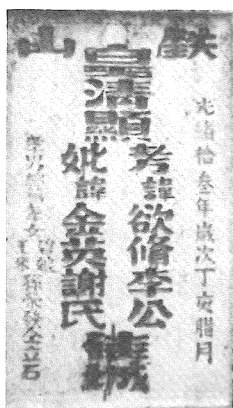 鉄山
光緒拾叁年歲次丁亥臘月
皇清顯
考諱欲脩李公
妣諱金英謝氏
城
孝男 孝女 仝立石